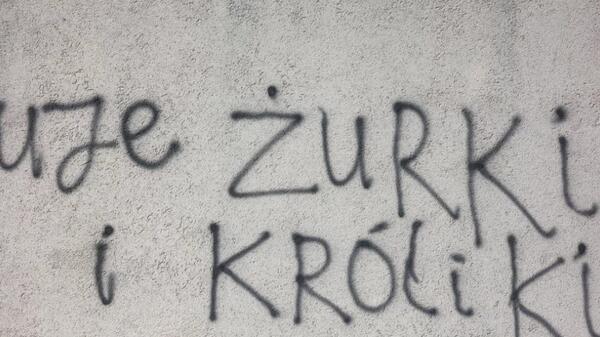 uje ŻURKI
i KRÓliKi